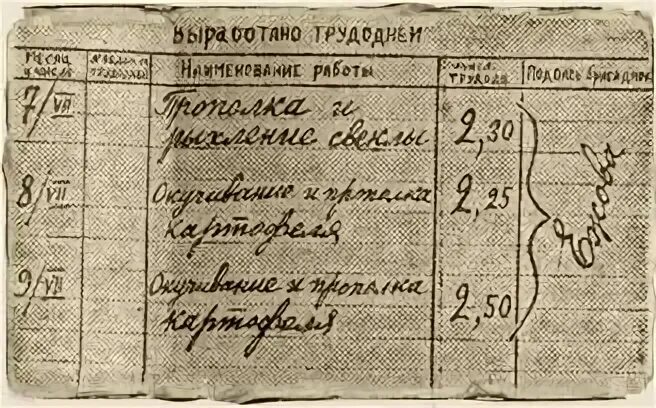 Выработано трудодней
Месяц и число
Наименование работы
Подпись бригадира
7/VII
Прополка и
рыхление свеклы
2,30
8/VII
Окучивание и прополка
картофеля
2,25
9/VII
Окучивание и прополка
картофеля
2,50
Ежова